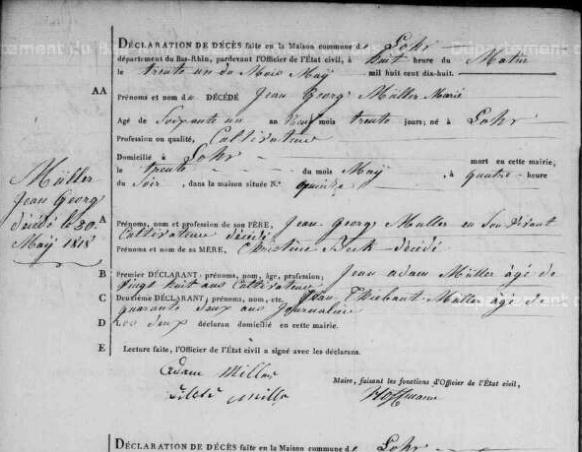 Département du Bas-Rhin
DÉCLARATION DE DÉCÈS faite en la Maison commune de Lohr
département du Bas-Rhin, pardevant l'Officier de l'État civil, à huit heure du Matin
le trente un du Mois Maÿ mil huit cent dix-huit.
AA
Prénoms et nom du DÉCÉDÉ Jean Georg Müller Marié
Agé de Soixante un an neuf mois trente jours; né à Lohr
Profession ou qualité, Cultivateur
Domicilié à Lohr mort en cette mairie,
le trente du mois Maÿ, à quatre heure
du Soir, dans la maison située N.° quinze
Müller
Jean Georg
décédé le 30.
Maÿ 1818
A
Prénoms, nom et profession de son PÈRE, Jean Georg Muller en Son Vivant
Cultivateur décédé
Prénoms et nom de sa MÈRE, Christine Beck décédé
B Premier DÉCLARANT, prénoms, nom, âge, profession; Jean adam Müller âgé de
Vingt huit ans Cultivateur
C Deuxième DÉCLARANT, prénoms, nom, etc. Jean Thiebaut Muller âgé de
quarante deux ans Journalier
D Les deux déclaran domicilié en cette mairie.
E Lecture faite, l'Officier de l'État civil a signé avec les déclarans.
Adam Miller
Maire, faisant les fonctions d'Officier de l'État civil,
Hoffmann
DÉCLARATION DE DÉCÈS faite en la Maison commune de Lohr